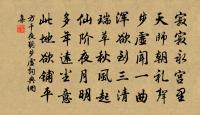 寂寂永宮里
天師朝禮聲
步虛聞一曲
渾欲到三清
瑞草秋風起
仙階夜月明
多年遠塵意
此地欲鋪平
方干夜聽步虛詞典網
集